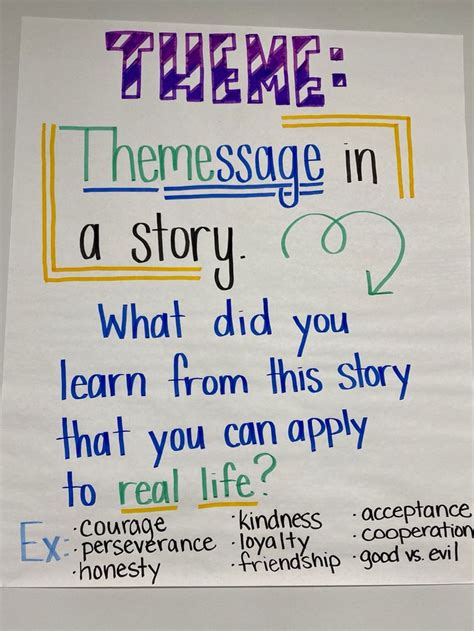 THEME:
Themessage in
a story.
What did you
learn from this story
that you can apply
to real life?
Ex: · courage · kindness · acceptance
· perseverance · loyalty · cooperation
· honesty · friendship · good vs. evil